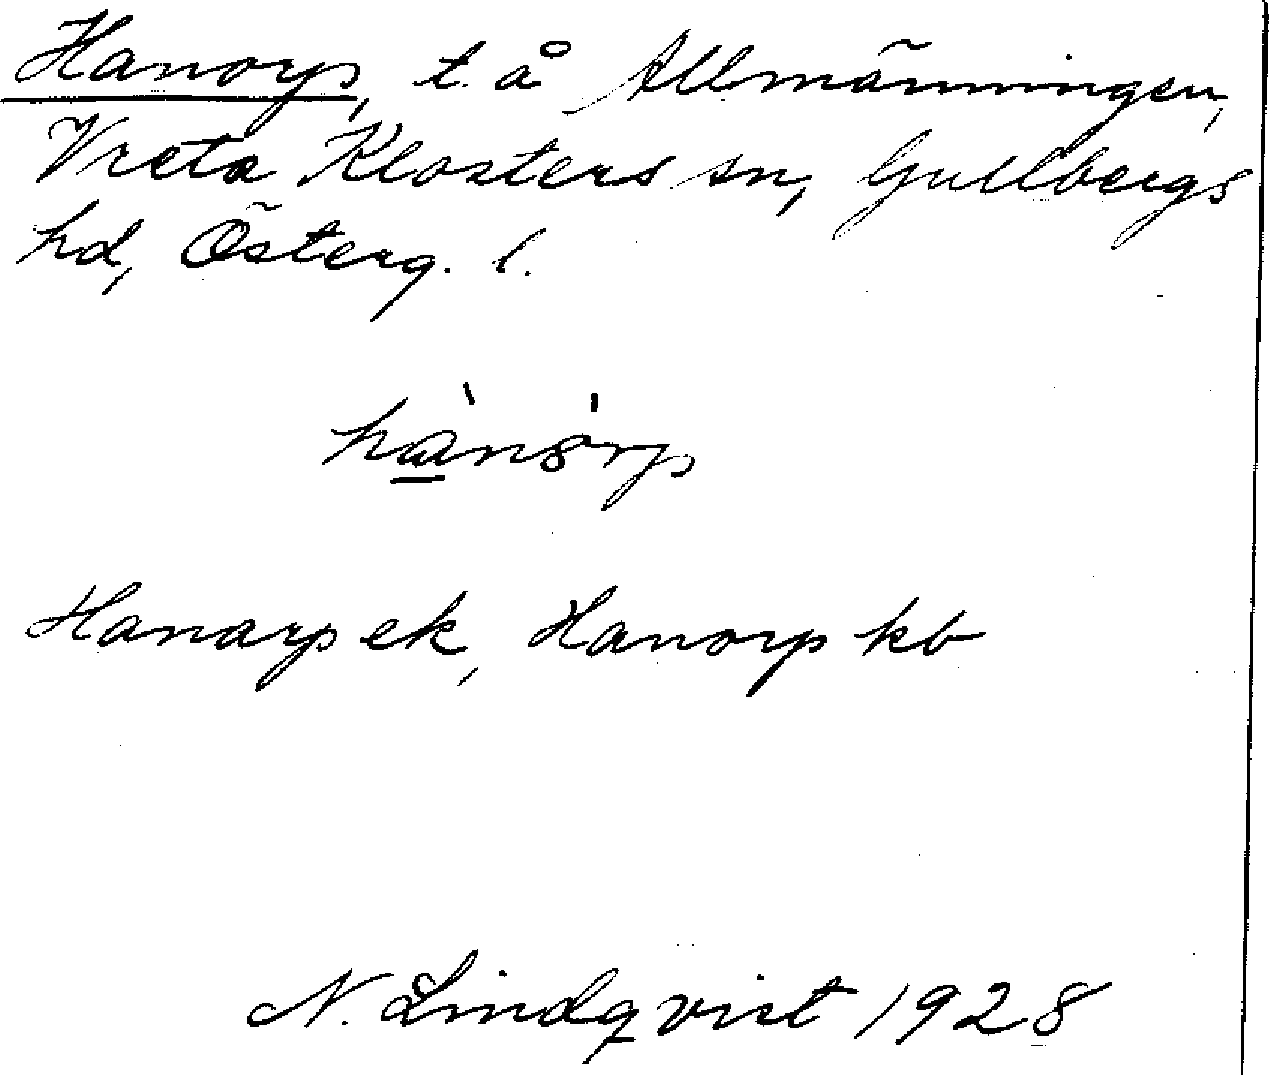 Hanorp, t. å Allmänningen,
Vreta Klosters sn, Gullbergs
hd, Österg. l.
hànȣ̈rp
Hanarp ek, Hanorp kb
N. Lindqvist 1928